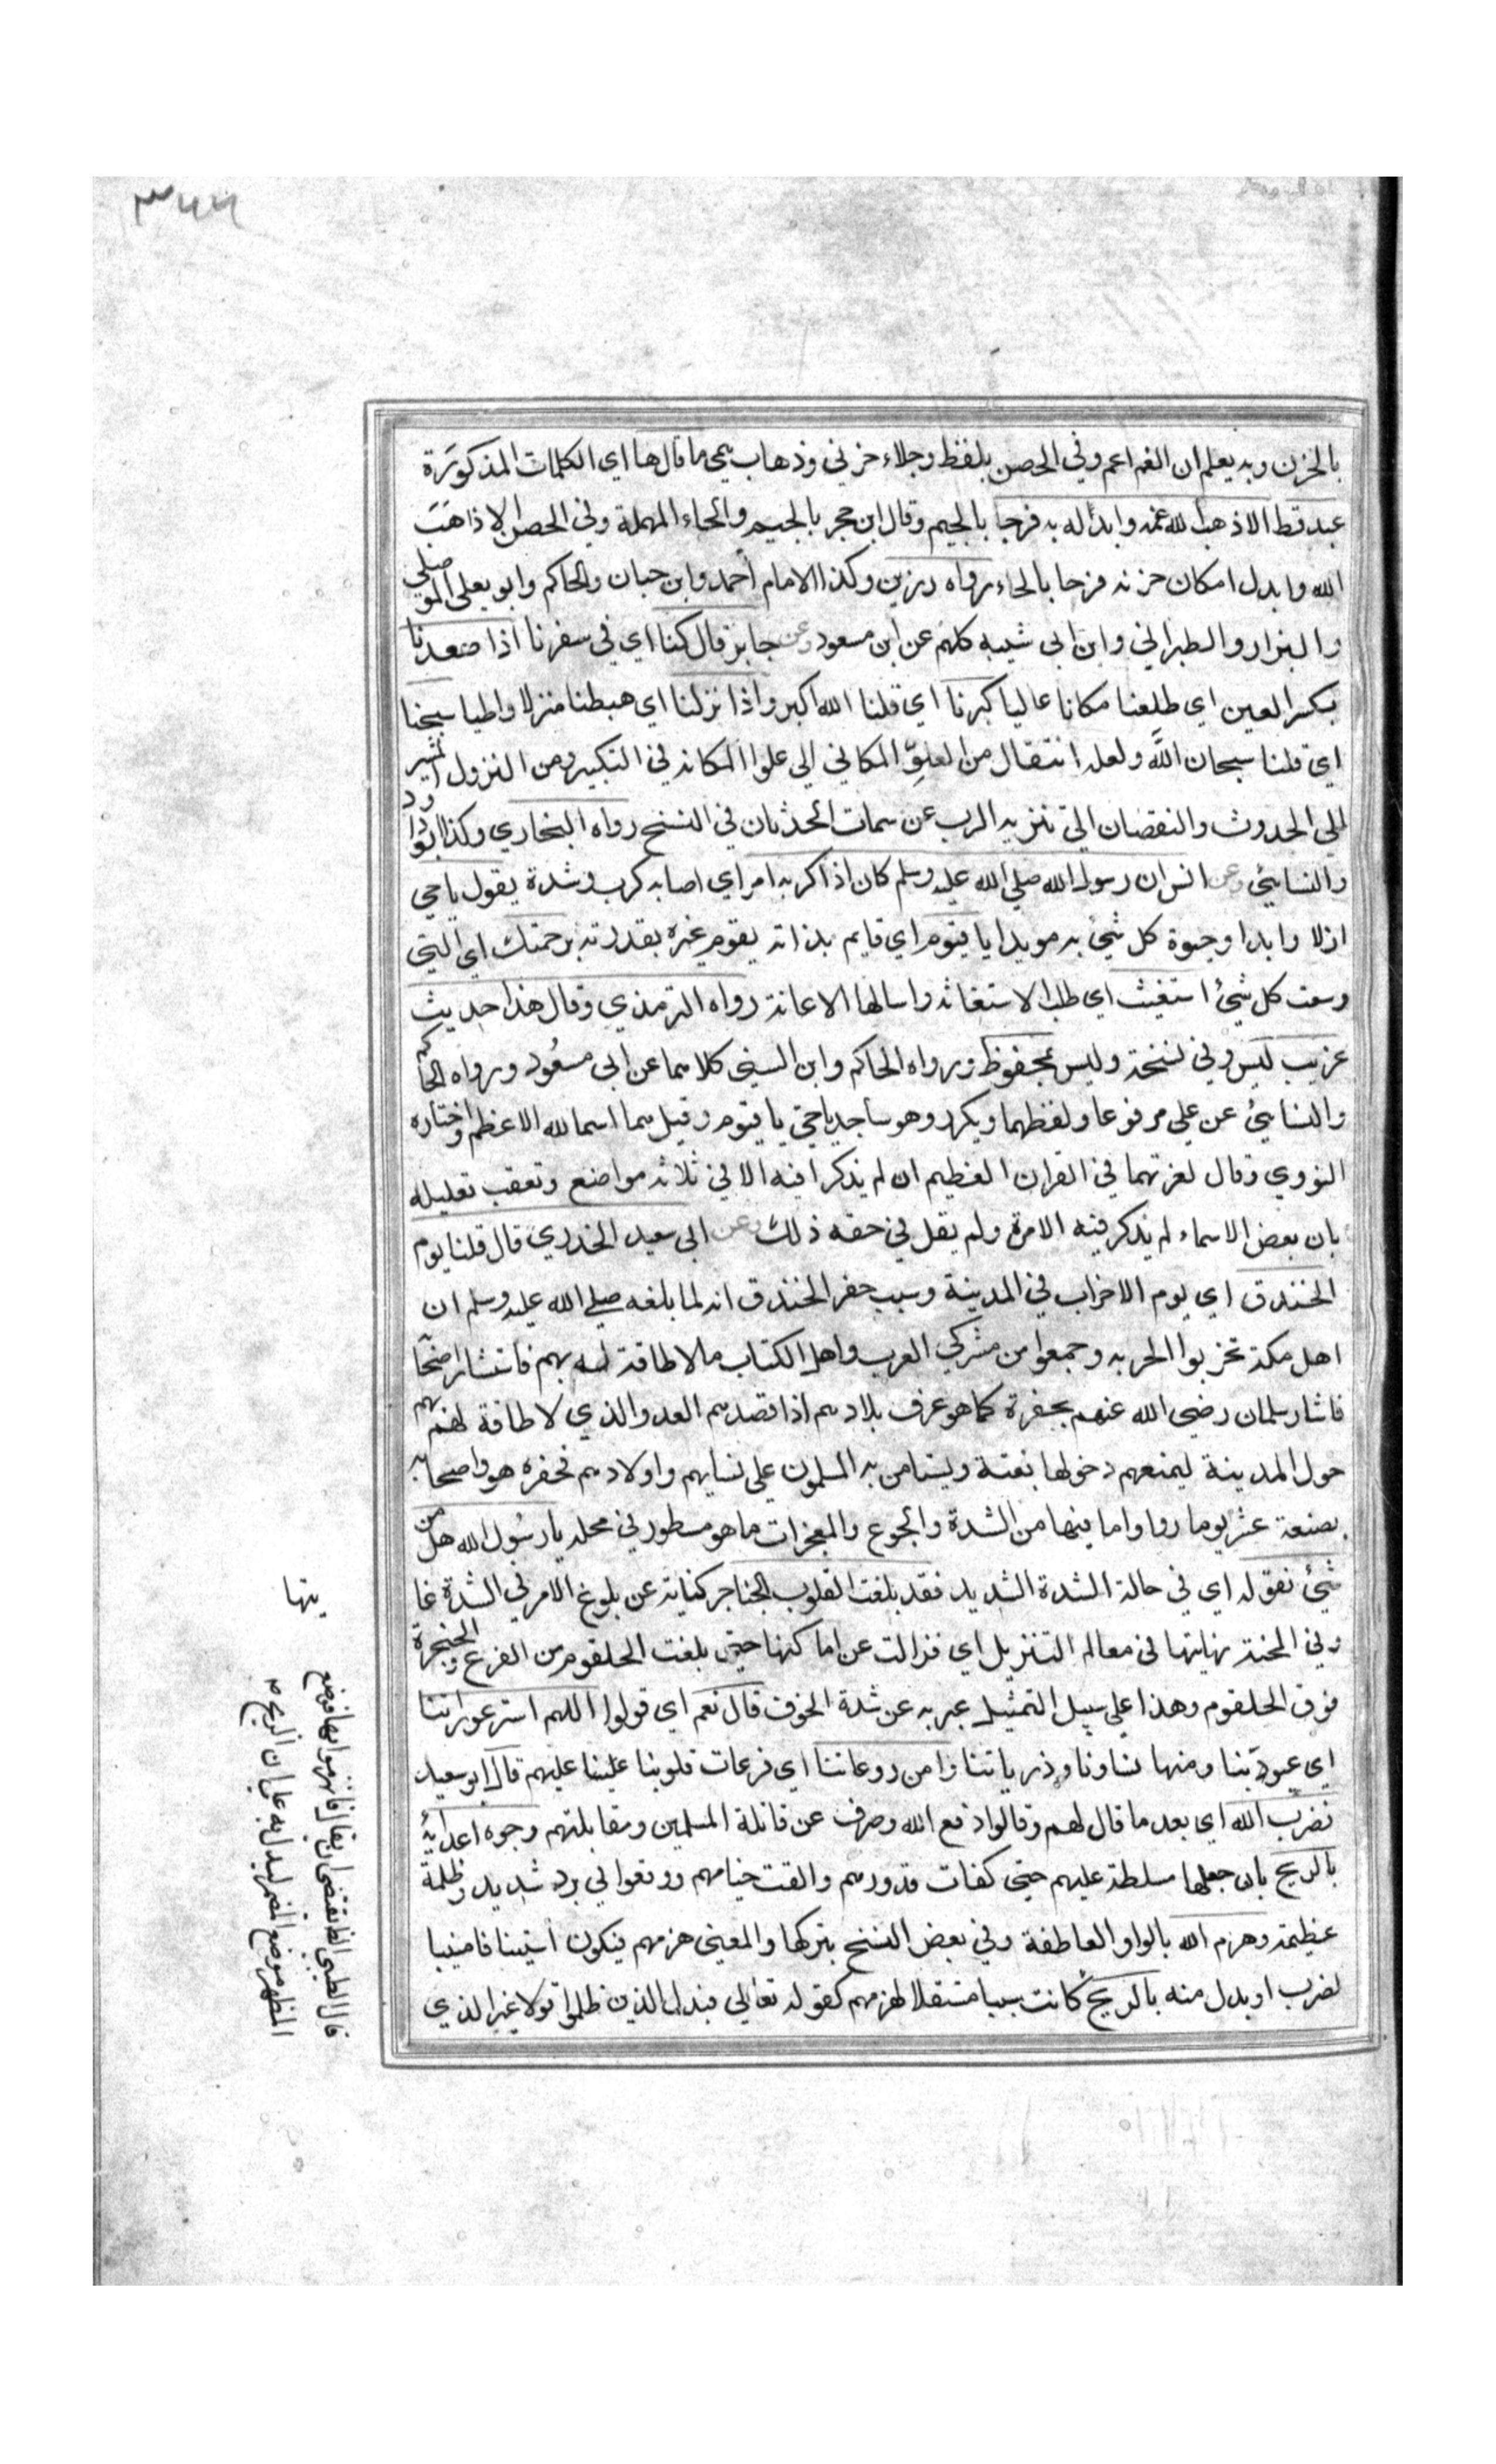 ٣٤٤
بالحزن وبه يعلم ان الغم اعم وفي الحصن بلفظ وجلاء حزني وذهاب همي ما قالها اي الكلمات المذكورة
عبد قط الا ذهب الله غمه وابدله به فرجا بالجيم وقال ابن حجر بالجيم والحاء المهملة وفي الحصن الا ذاهب
الله وابدل مكان حزنه فرحا بالحاء رواه رزين وكذا الامام احمد وابن حبان والحاكم وابو يعلى الموصلي
والبزار والطبراني وابن ابي شيبه كلهم عن ابن مسعود وعن جابر قال كنا اي في سفرنا اذا صعدنا
بكسر العين اي طلعنا مكانا عاليا كبرنا اي قلنا الله اكبر واذا نزلنا اي هبطنا منزلا واطيا سبحنا
اي قلنا سبحان الله ولعله انتقال من العلو المكاني الى علو المكانه في التكبير ومن النزول المشير
الى الحدوث والنقصان الى تنزيه الرب عن سمات الحدثان في التسبيح رواه البخاري وكذا ابو داود
والنسائي وعن انس ان رسول الله صلى الله عليه وسلم كان اذا كربه امر اي اصابه كرب وشدة يقول يا حي
ازلا وابدا وحيوة كل شئ به مويدا يا قيوم اي قايم بذاته يقوم غيره بقدرته برحمتك اي التي
وسعت كل شئ استغيث اي طلب الاستغاثه واسالها الاعانة رواه الترمذي وقال هذا حديث
غريب ليس وفي نسخة وليس بمحفوظ ورواه الحاكم وابن السني كلاهما عن ابي مسعود ورواه الحاكم
والنسائي عن علي مرفوعا ولفظهما ويكرر وهو ساجد يا حي يا قيوم وقيل هما اسما لله الاعظم واختاره
النووي وقال لعزتهما في القران العظيم ان لم يذكرا فيه الا في ثلاثه مواضع وتعقب تعليله
بان بعض الاسماء لم يذكر فيه الا مرة ولم يقل في حقه ذلك وعن ابي سعيد الخدري قال قلنا يوم
الخندق اي يوم الاحزاب في المدينة وسبب حفر الخندق انه لما بلغه صلى الله عليه وسلم ان
اهل مكة تحزبوا الحربه وجمعوا من مشركي العرب واهل الكتاب ما لا طاقة له بهم فاستشار اصحابه
فاشار سلمان رضي الله عنهم بحفرة كما هو عرف بلادهم اذا قصدهم العدو الذي لا طاقة لهم بهم
حول المدينة ليمنعهم دخولها بغتة ويستامن به المسلمون على نسايهم واولادهم فحفره هو واصحابه
بضعة عشر يوما وراوا ما فيها من الشدة والجوع والمعجزات ما هو مسطور في محله يا رسول الله هل من
شئ نقوله اي في حالة الشدة الشديد فقد بلغت القلوب الحناجر كناية عن بلوغ الامر في الشدة غا
وفي المحنة نهايتها في معالم التنزيل اي فزالت عن اماكنها حتى بلغت الحلقوم من الفزع والحنجرة
فوق الحلقوم وهذا على سبيل التمثيل عبر به عن شدة الخوف قال نعم اي قولوا اللهم استر عوراتنا
اي عيوبنا ومنها نساونا وذرياتنا وامن روعاتنا اي فزعات قلوبنا علينا عليهم قال ابو سعيد
فضرب الله اي بعد ما قال لهم وقالوا دفع الله وصرف عن قاتلة المسلمين ومقابلتهم وجوه اعدائه
بالريح بان جعلها مسلطة عليهم حتى كفات قدورهم والقت خيامهم ووقعوا في برد شديد وظلمة
عظيمة وهزم الله بالواو العاطفة وفي بعض النسخ بتركها والمعنى هزمهم فيكون استينافا مبينا
لضرب او بدل منه بالريح كانت سببا مستقلا لهزمهم كقوله تعالى فبدل الذين ظلموا قولا غير الذي
يتها
قال الطيبي الظا يقتضي ان يقال فانهزموا بها فوضع
المظهر موضع المضمر ليدل به على ان الريح